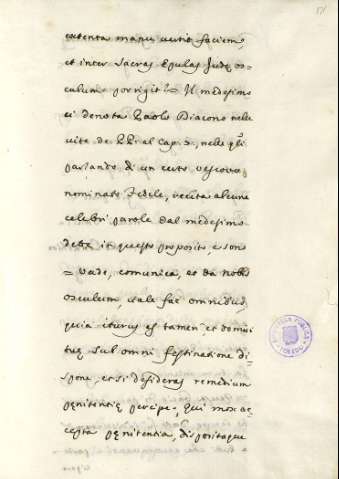 extenta manu vertit faciem,
et inter sacras Epulas Judę os-
culum porrigit. Il medesimo
ci denota Paolo Diacono nelle
vite de PP. al Cap. , nelle qli
parlando di un certo vescovo
nominato Fidele, recita alcune
celebri parole dal medesimo
dette in questo proposito, e sono
= Vade, comunica, et da nobis
osculum, vale fac omnibus,
quia iturus es tamen et domui
tuę sub omni festinatione di-
spone, et si desideras remedium
pęnitentię percipe, qui mox ac-
cepta pęnitentia, dispositaque